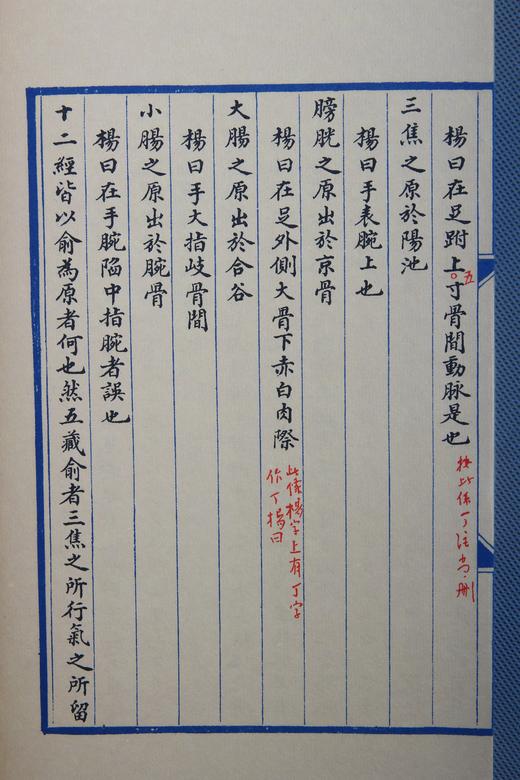 楊曰在足跗上五寸骨間動脉是也
按此係丁注當刪
三焦之原於陽池
楊曰手表腕上也
膀胱之原出於京骨
楊曰在足外側大骨下赤白肉際
此條楊字上有丁字
作丁楊曰
大腸之原出於合谷
楊曰手大指歧骨間
小腸之原出於腕骨
楊曰在手腕陷中指腕者誤也
十二經皆以俞為原者何也然五藏俞者三焦之所行氣之所留